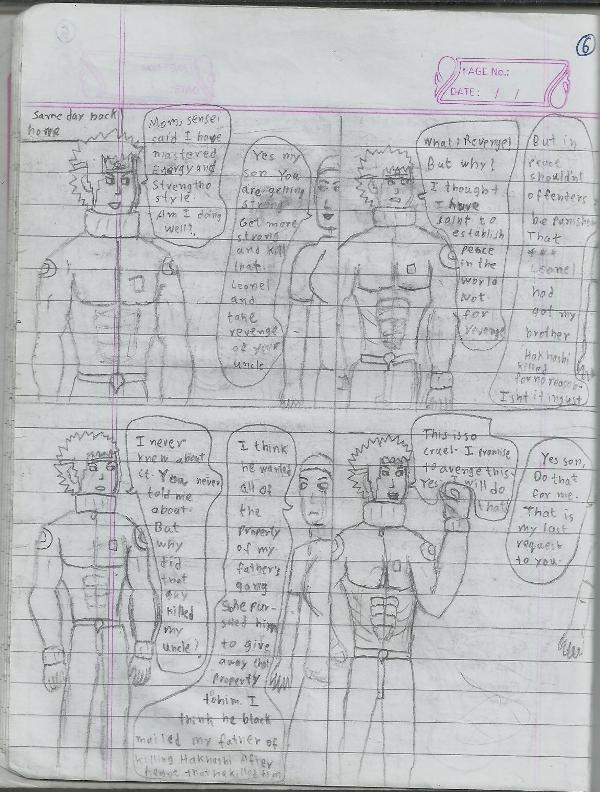 6
PAGE No.:
DATE: / /
same day back
home
Mom, sensei
said I have
mastered
Energy and
Strengtho
style.
Am I doing
well?
Yes my
son You
are getting
strong
Get more
strong
and kill
that.
Leonel
and
take
revenge
of your
uncle
What? Revenge!
But why?
I thought
I have
joint to
establish
peace
in the
world
Not
for
revenge
But in
peace
shouldn't
offenders
be punished
That
***
Leonel
had
got my
brother
Hakhashi
killed
for no reason.
Isn't it injust
I never
knew about
it. You never
told me
about.
But
why
did
that
guy
killed
my
uncle?
I think
he wanted
all of
the
property
of my
father's
gang
So he pur-
sued him
to give
away that
property
to him. I
think he black
mailed my father of
killing Hakhashi After
that he killed him
This is so
cruel. I promise
to avenge this.
Yes I will do
that
Yes son,
Do that
for me.
That is
my last
request
to you.